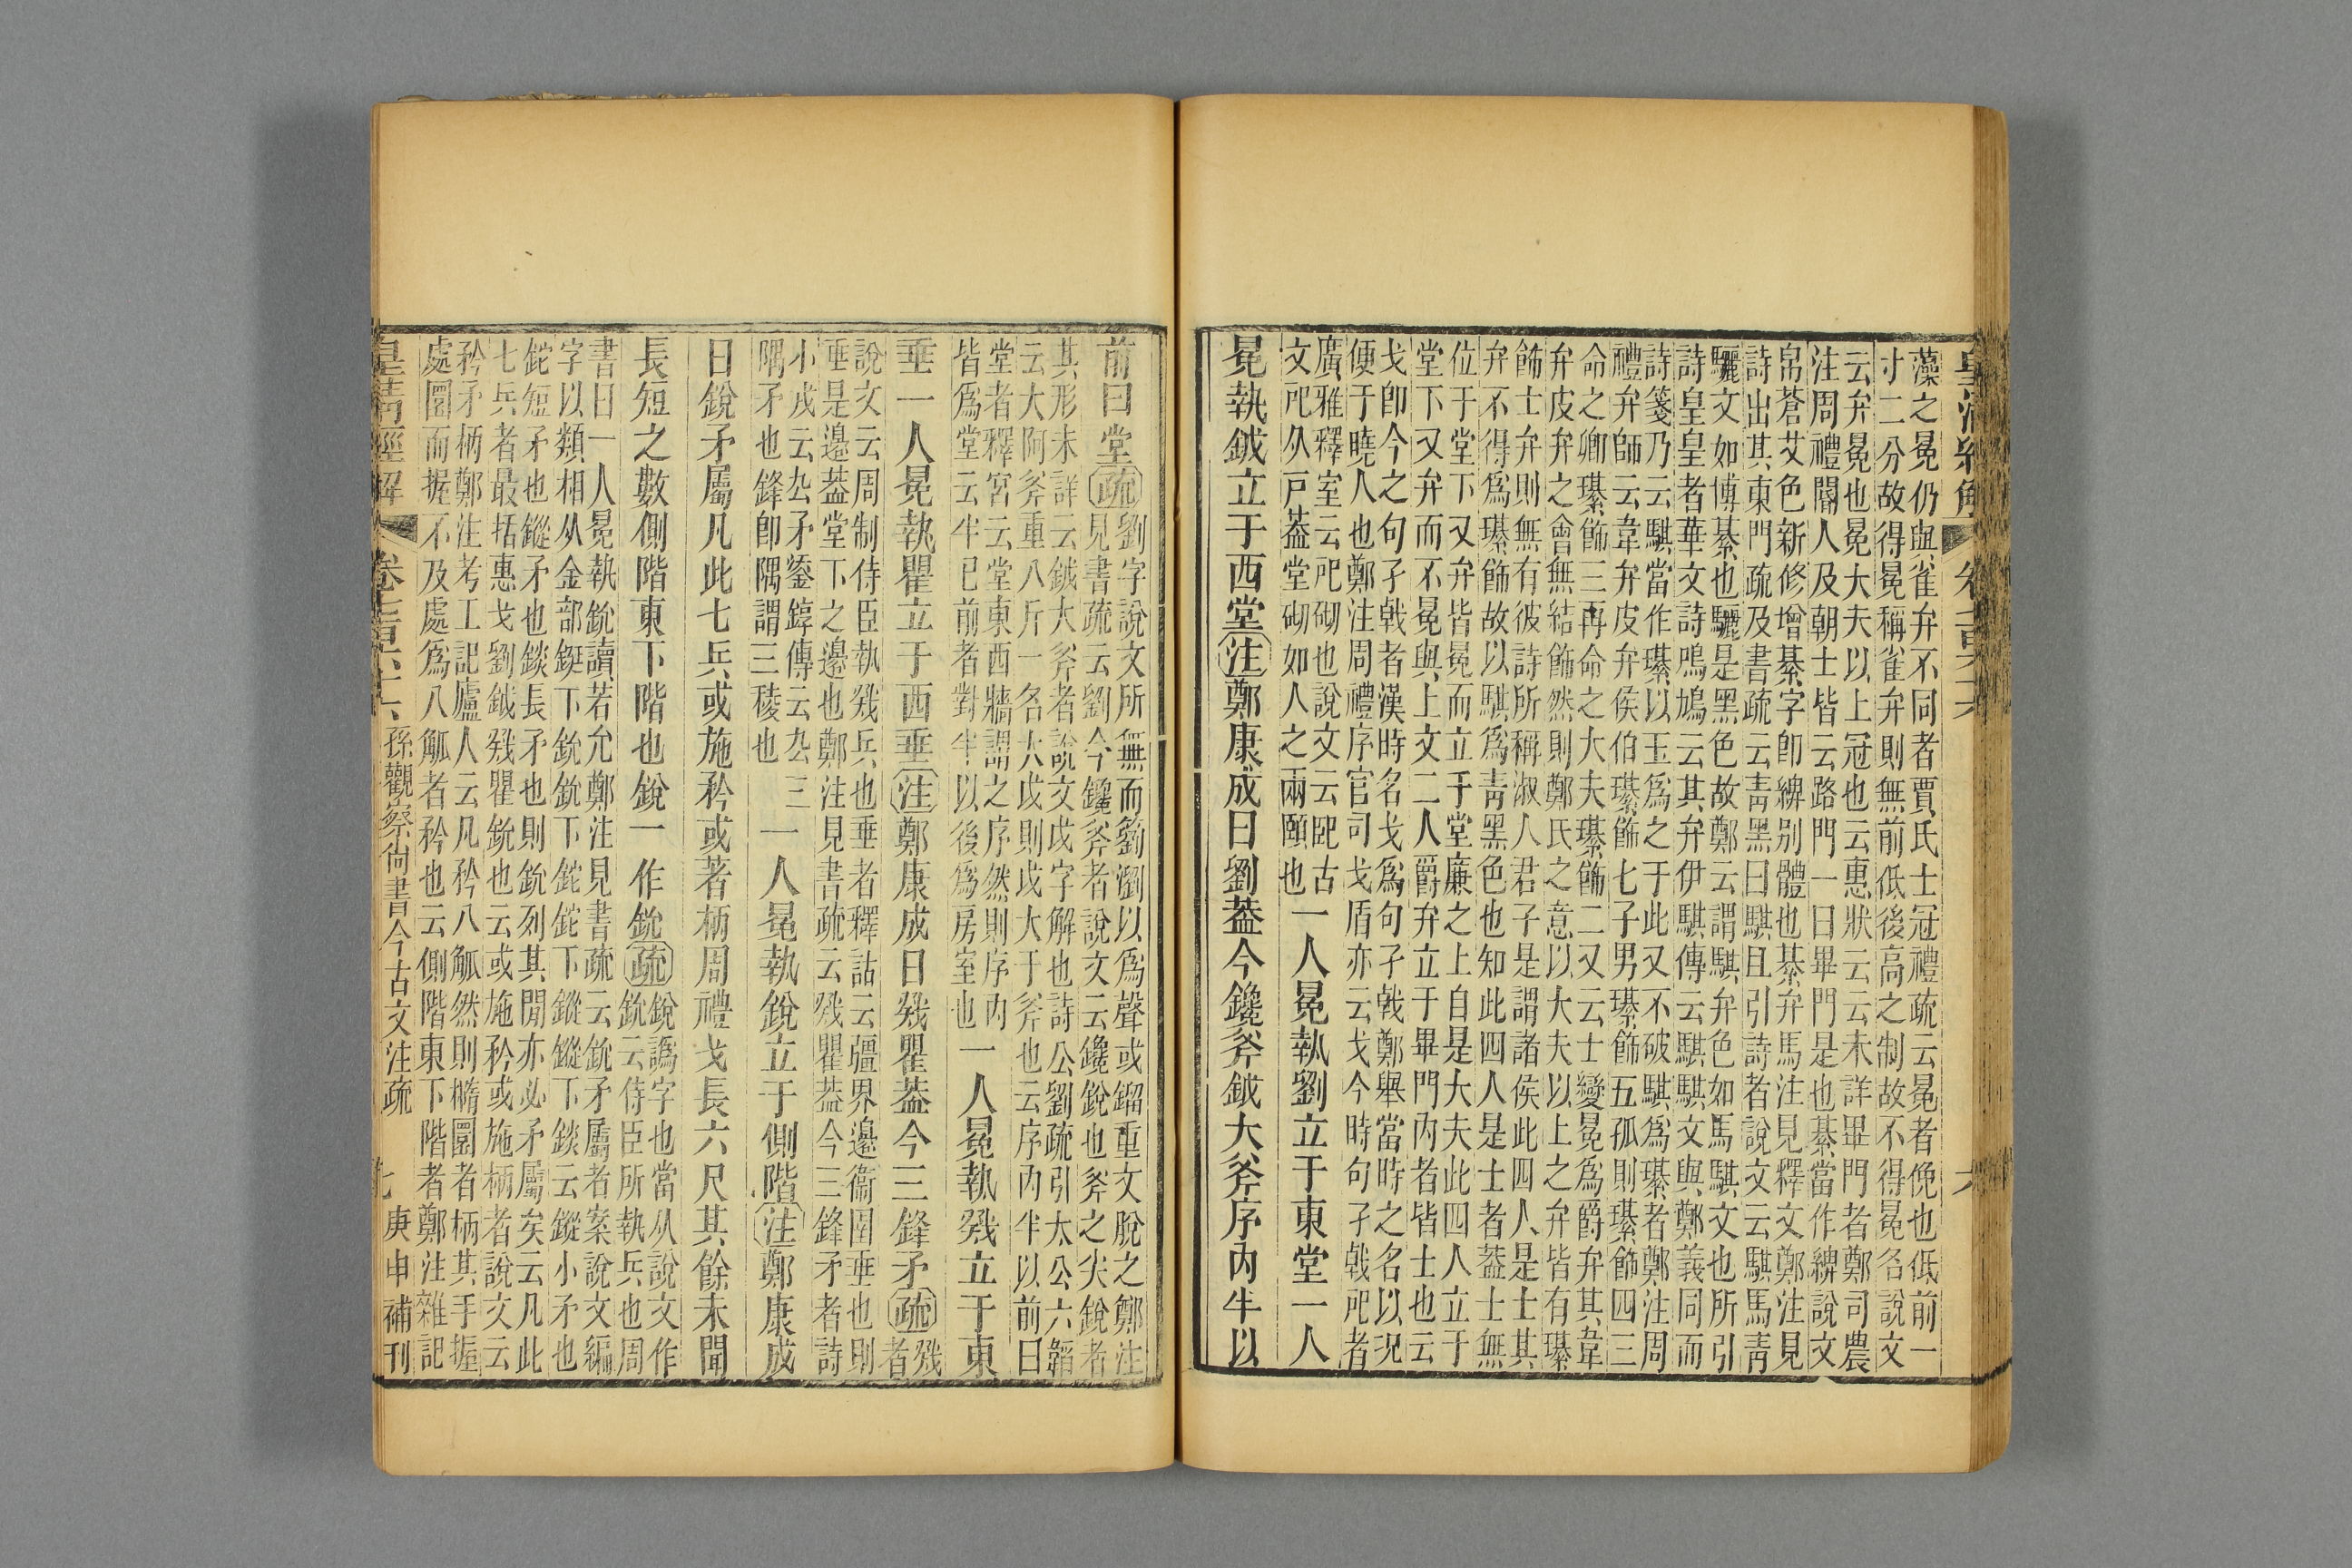 藻之冕仍與雀弁不同者賈氏士冠禮疏云冕者俛也低前一
寸二分故得冕稱雀弁則無前低後高之制故不得冕名說文
云弁冕也冕大夫以上冠也云惠狀云云未詳畢門者鄭司農
注周禮閽人及朝士皆云路門一曰畢門是也綦當作綼說文
帛蒼艾色新修增綦字卽綼别體也綦弁馬注見釋文鄭注見
詩出其東門疏及書疏云靑黑曰騏且引詩者說文云騏馬靑
驪文如博綦也驪是黑色故鄭云謂騏弁色如馬騏文也所引
詩皇皇者華文詩鳲鳩云其弁伊騏傳云騏騏文與鄭義同而
詩箋乃云騏當作瑧以玉爲之于此又不破騏爲瑧者鄭注周
禮弁師云韋弁皮弁侯伯瑧飾七子男瑧飾五孤則瑧飾四三
命之卿瑧飾三再命之大夫瑧飾二又云士變冕爲爵弁其韋
弁皮弁之會無結飾然則鄭氏之意以大夫以上之弁皆有瑧
飾士弁則無有彼詩所稱淑人君子是謂諸侯此四人是士其
弁不得爲瑧飾故以騏爲靑黑色也知此四人是士者葢士無
位于堂下又弁皆冕而立于堂廉之上自是大夫此四人立于
堂下又弁而不冕與上文二人爵弁立于畢門內者皆士也云
戈卽今之句孑戟者漢時名戈爲句孑戟鄭舉當時之名以況
便于曉人也鄭注周禮序官司戈盾亦云戈今時句孑戟戺者
廣雅釋室云戺砌也說文云戺古
文戺从戸葢堂砌如人之兩頤也
一人冕執劉立于東堂一人
冕執鉞立于西堂注鄭康成曰劉葢今鑱斧鉞大斧序內半以
前曰堂疏
劉字說文所無而籀瀏以爲聲或鎦重文脫之鄭注
見書疏云劉今鑱斧者說文云鑱銳也斧之尖銳者
其形未詳云鉞大斧者說文戉字解也詩公劉疏引太公六韜
云大阿斧重八斤一名大戉則戉大于斧也云序內半以前曰
堂者釋宮云堂東西牆謂之序然則序內
皆爲堂云半已前者對半以後爲房室也
一人冕執戣立于東
垂一人冕執瞿立于西垂注鄭康成曰戣瞿葢今三鋒矛疏
戣
者
說文云周制侍臣執戣兵也垂者釋詁云疆界邊衞圉垂也則
垂是邊葢堂下之邊也鄭注見書疏云戣瞿葢今三鋒矛者詩
小戎云厹矛鋈錞傳云厹三
隅矛也鋒卽隅謂三稜也
一人冕執銳立于側階注鄭康成
曰銳矛屬凡此七兵或施矜或著柄周禮戈長六尺其餘未聞
長短之數側階東下階也銳一作鈗疏
銳譌字也當从說文作
鈗云侍臣所執兵也周
書曰一人冕執鈗讀若允鄭注見書疏云鈗矛屬者案說文編
字以類相从金部鋋下鈗鈗下鉈鉈下鏦鏦下錟云鏦小矛也
鉈短矛也鏦矛也錟長矛也則鈗列其閒亦必矛屬矣云凡此
七兵者最括惠戈劉鉞戣瞿鈗也云或施矜或施柄者說文云
矜矛柄鄭注考工記廬人云凡矜八觚然則橢圜者柄其手握
處圜而握不及處處爲八觚者矜也云側階東下階者鄭注雜記
皇淸經解
卷七百六十六
孫觀察尙書今古文注疏
七
庚申補刊